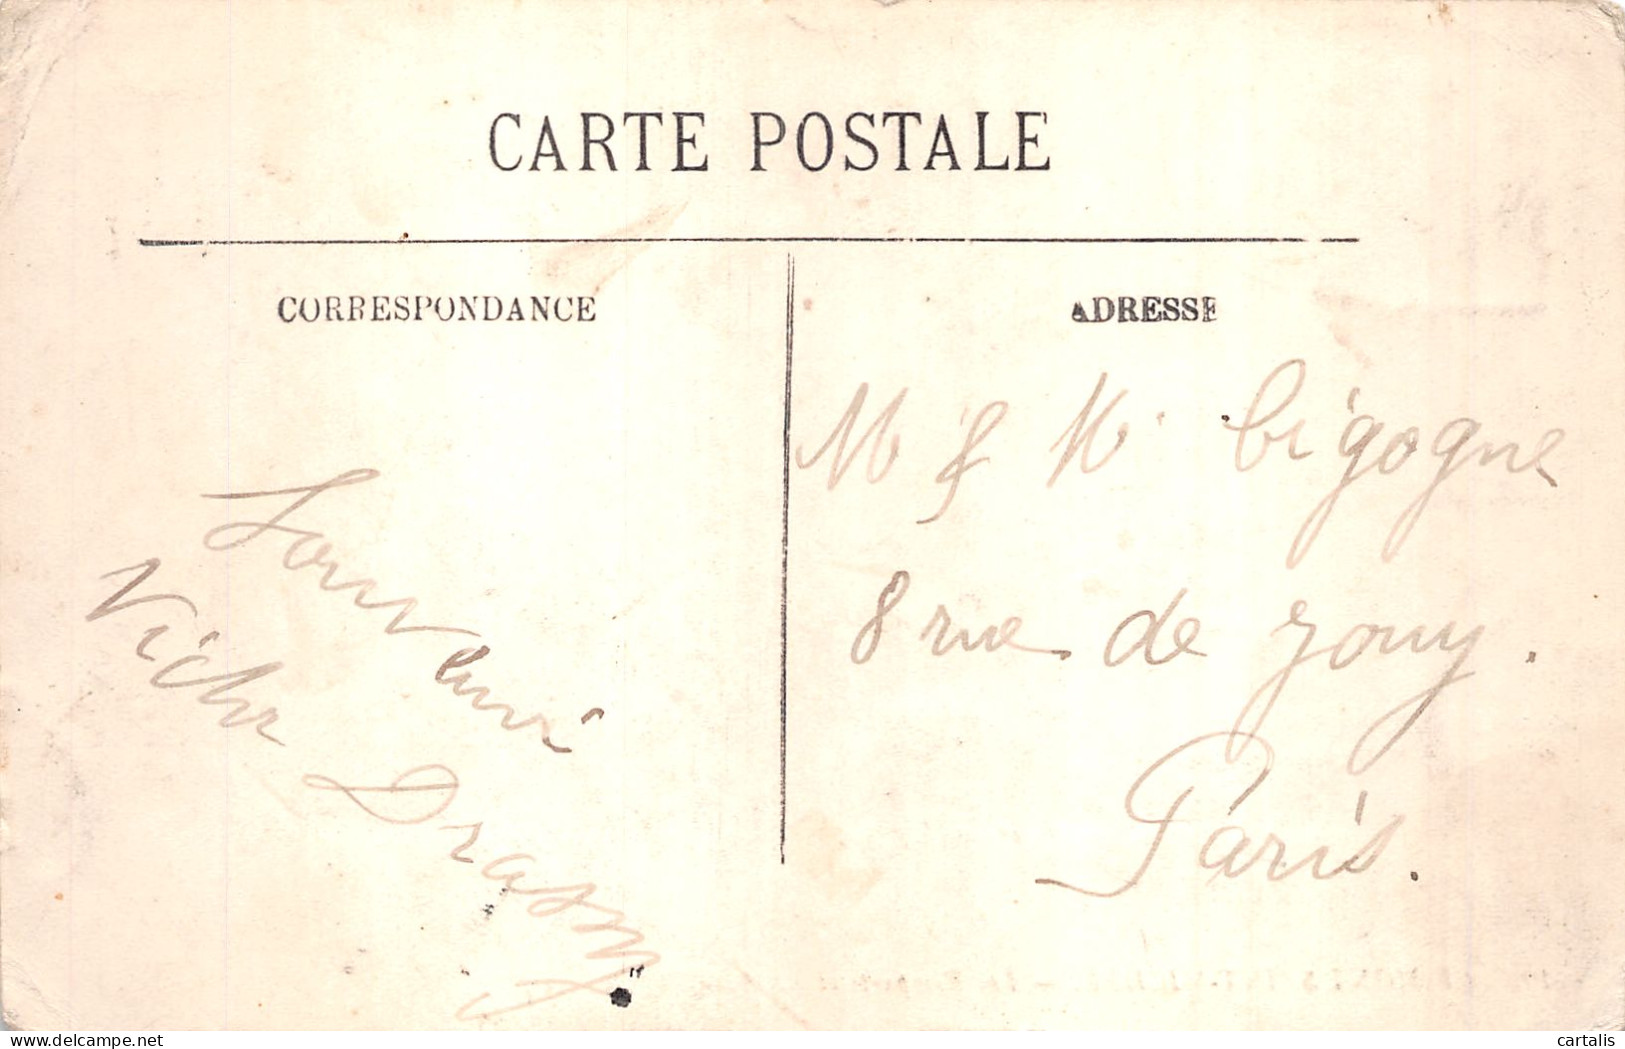 CARTE POSTALE
CORRESPONDANCE
Souvenir
Vichr Drasny
ADRESSE
M & M Cigogne
8 rue de Jouy.
Paris.
www.delcampe.net
cartalis